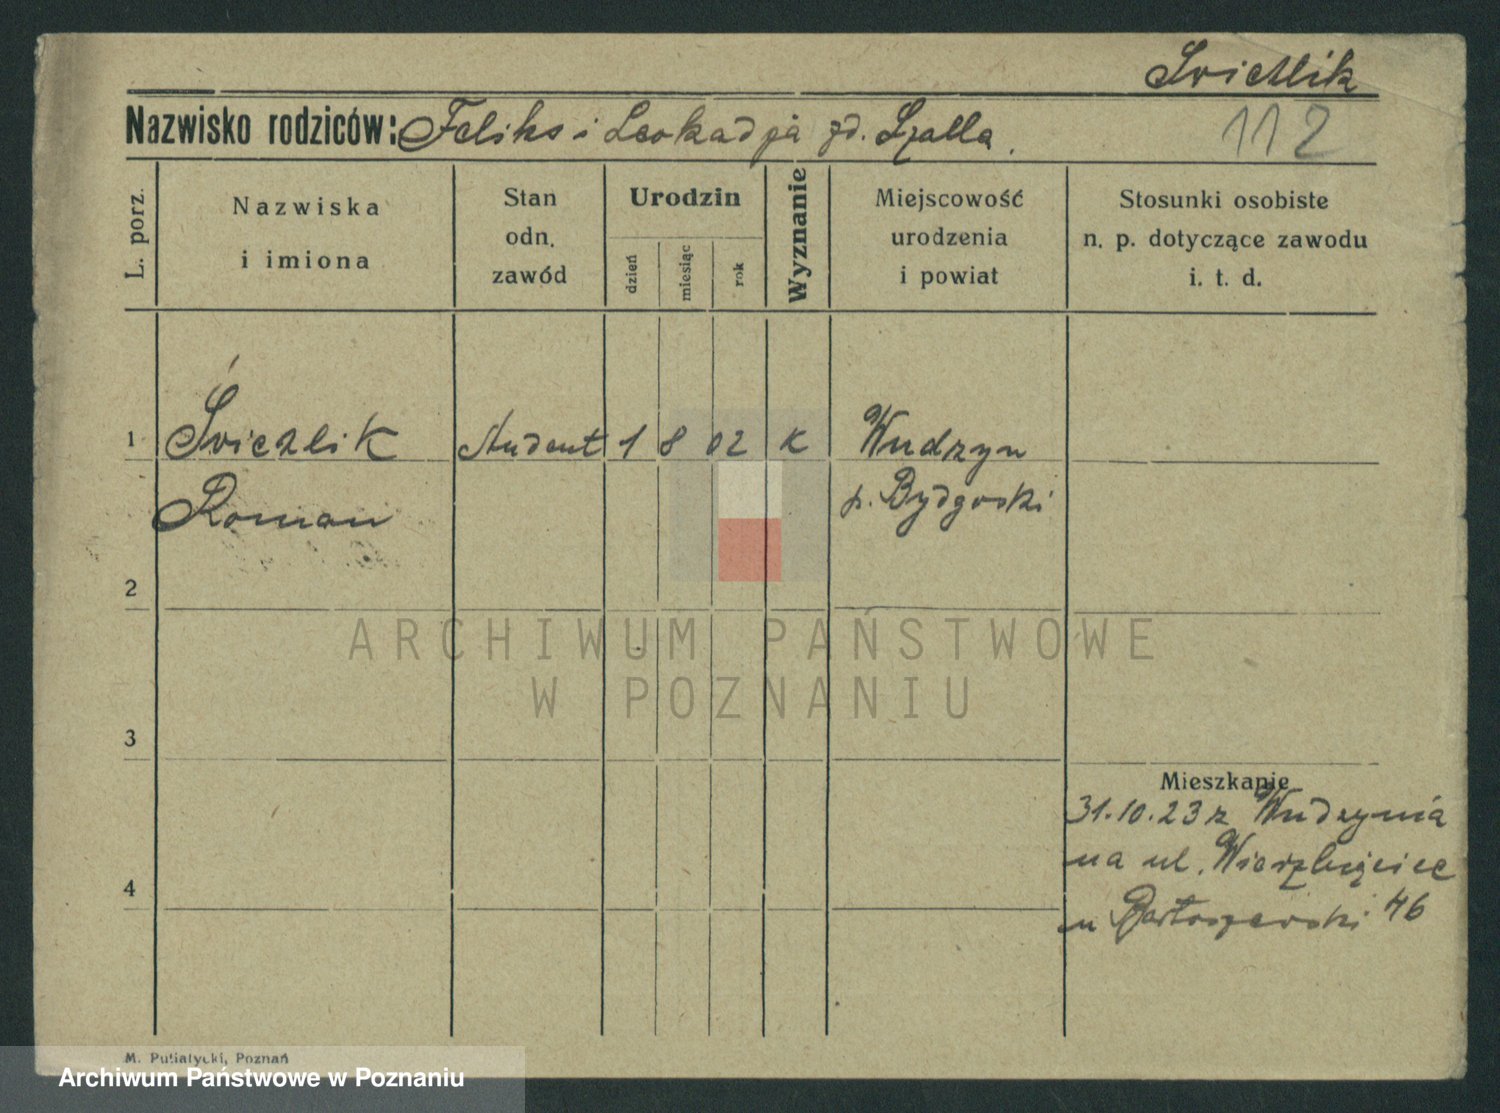 Świetlik
Nazwisko rodziców: Feliks i Leokadja zd. Szalla.
112
L. porz.
Nazwiska
i imiona
Stan
odn.
zawód
Urodzin
dzień
miesiąc
rok
Wyznanie
Miejscowość
urodzenia
i powiat
Stosunki osobiste
n. p. dotyczące zawodu
i. t. d.
1 Student 1 8 02 K Wudzyn
Roman p. Bydgoski
2
ARCHIWUM PAŃSTWOWE
W POZNANIU
3
Mieszkanie
31.10.23 z Wudzynia
4 na ul. Wierzbięcice
u Bartoszewski 46
M. Putiatycki, Poznań
Archiwum Państwowe w Poznaniu